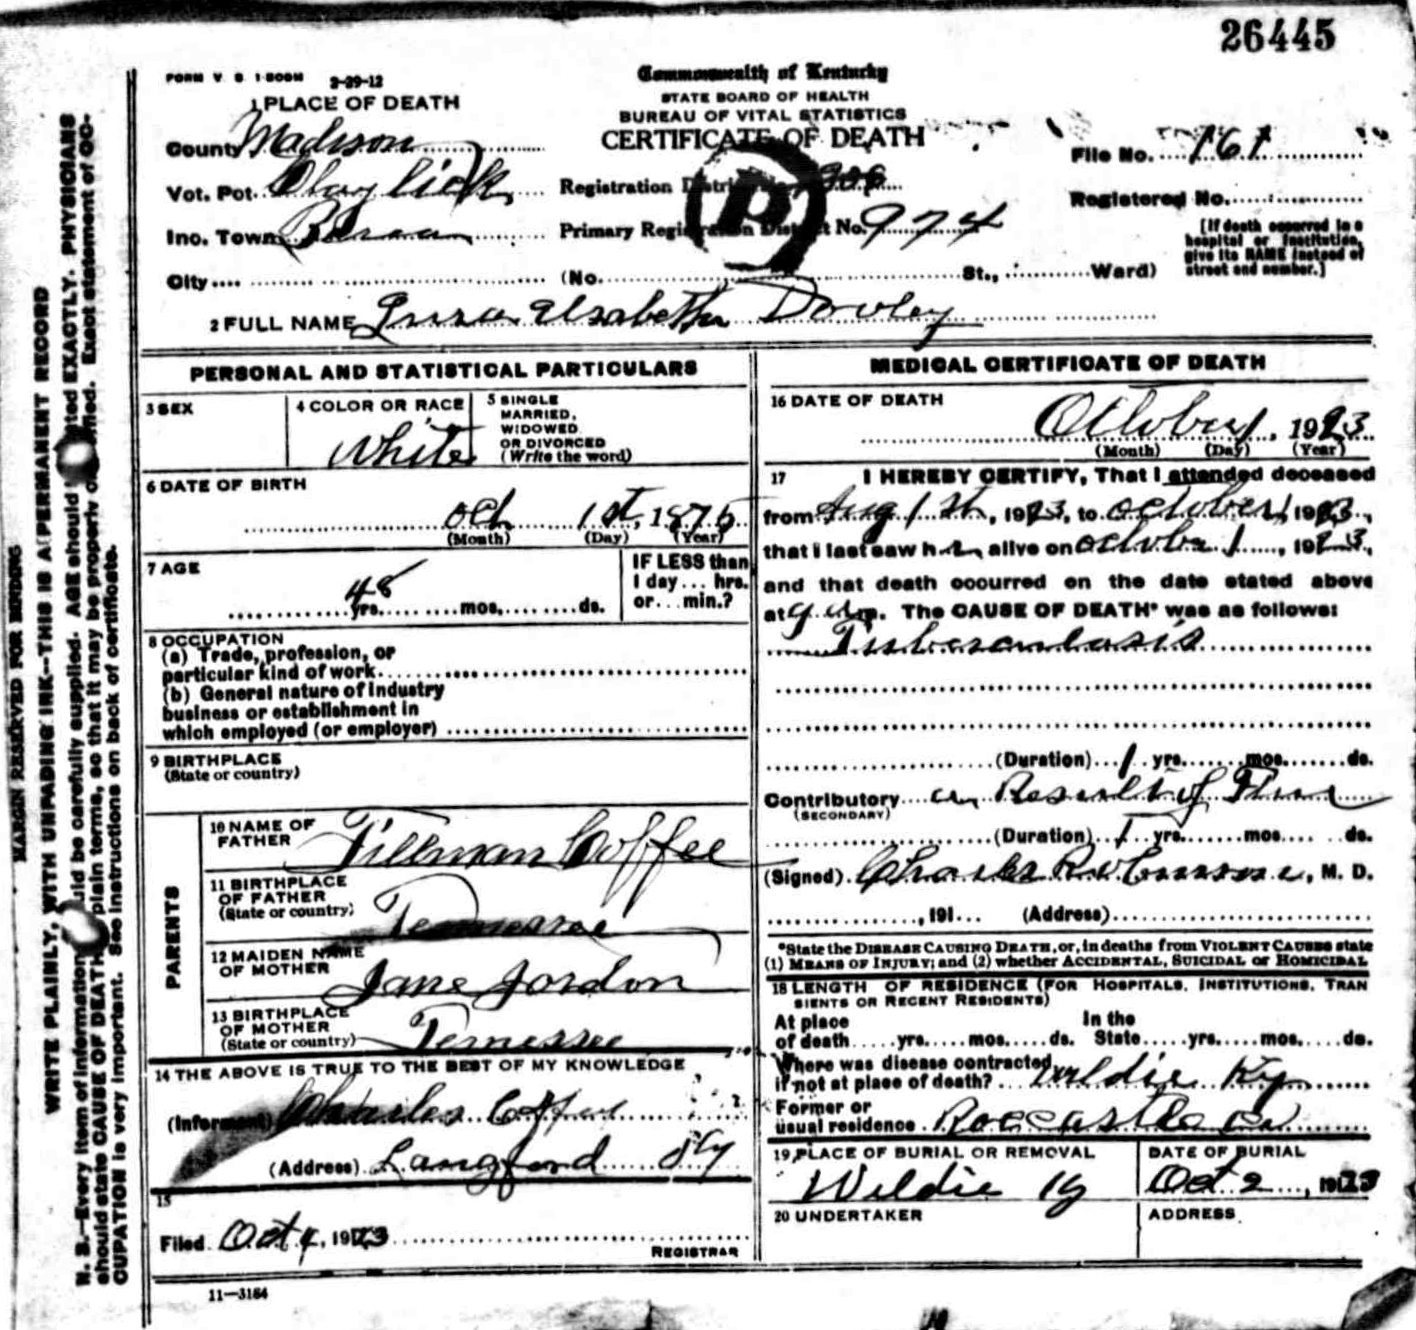 26445
FORM V. S. 1-500M 2-29-12
Commonwealth of Kentucky
STATE BOARD OF HEALTH
BUREAU OF VITAL STATISTICS
CERTIFICATE OF DEATH
1 PLACE OF DEATH
County Madison
Vot. Pct.
Inc. Town
City
Registration District No.
Primary Registration District No. 974
(No. St., Ward)
File No. 161
Registered No.
[If death occurred in a
hospital or institution,
give its NAME instead of
street and number.]
P
2 FULL NAME Elsabeth Dooley
PERSONAL AND STATISTICAL PARTICULARS
3 SEX
4 COLOR OR RACE
White
5 SINGLE
MARRIED,
WIDOWED
OR DIVORCED
(Write the word)
6 DATE OF BIRTH
Oct 1st, 1875
(Month) (Day) (Year)
7 AGE
48
yrs. mos. ds.
IF LESS than
1 day... hrs.
or... min.?
8 OCCUPATION
(a) Trade, profession, or
particular kind of work
(b) General nature of industry
business or establishment in
which employed (or employer)
9 BIRTHPLACE
(State or country)
PARENTS
10 NAME OF
FATHER
Tillman Coffee
11 BIRTHPLACE
OF FATHER
(State or country)
Tennessee
12 MAIDEN NAME
OF MOTHER
Jane Jordon
13 BIRTHPLACE
OF MOTHER
(State or country)
Tennessee
14 THE ABOVE IS TRUE TO THE BEST OF MY KNOWLEDGE
(Informant) Charles Coffee
(Address) Langford Ky
15
Filed Oct 4, 1923
REGISTRAR
11—3184
MEDICAL CERTIFICATE OF DEATH
16 DATE OF DEATH
October 1, 1923
(Month) (Day) (Year)
17 I HEREBY CERTIFY, That I attended deceased
from Aug 1st, 1923, to October 1 1923,
that I last saw her alive on October 1, 1923,
and that death occurred on the date stated above
at 9 a.m. The CAUSE OF DEATH* was as follows:
Tuberculosis
(Duration) 1 yrs. mos. ds.
Contributory a Result of Flue
(SECONDARY)
(Duration) 1 yrs. mos. ds.
(Signed) Charles, M. D.
, 191... (Address)
*State the DISEASE CAUSING DEATH, or, in deaths from VIOLENT CAUSES state
(1) MEANS OF INJURY; and (2) whether ACCIDENTAL, SUICIDAL or HOMICIDAL
18 LENGTH OF RESIDENCE (FOR HOSPITALS, INSTITUTIONS, TRAN
SIENTS OR RECENT RESIDENTS)
At place In the
of death yrs. mos. ds. State yrs. mos. ds.
Where was disease contracted,
if not at place of death? Wildie Ky
Former or
usual residence Roccastle Co
19 PLACE OF BURIAL OR REMOVAL
Wildie Ky
DATE OF BURIAL
Oct 2, 1923
20 UNDERTAKER
ADDRESS
MARGIN RESERVED FOR BINDING
WRITE PLAINLY, WITH UNFADING INK—THIS IS A PERMANENT RECORD
N. B.—Every item of information should be carefully supplied. AGE should be stated EXACTLY. PHYSICIANS
should state CAUSE OF DEATH in plain terms, so that it may be properly classified. Exact statement of OC-
CUPATION is very important. See instructions on back of certificate.